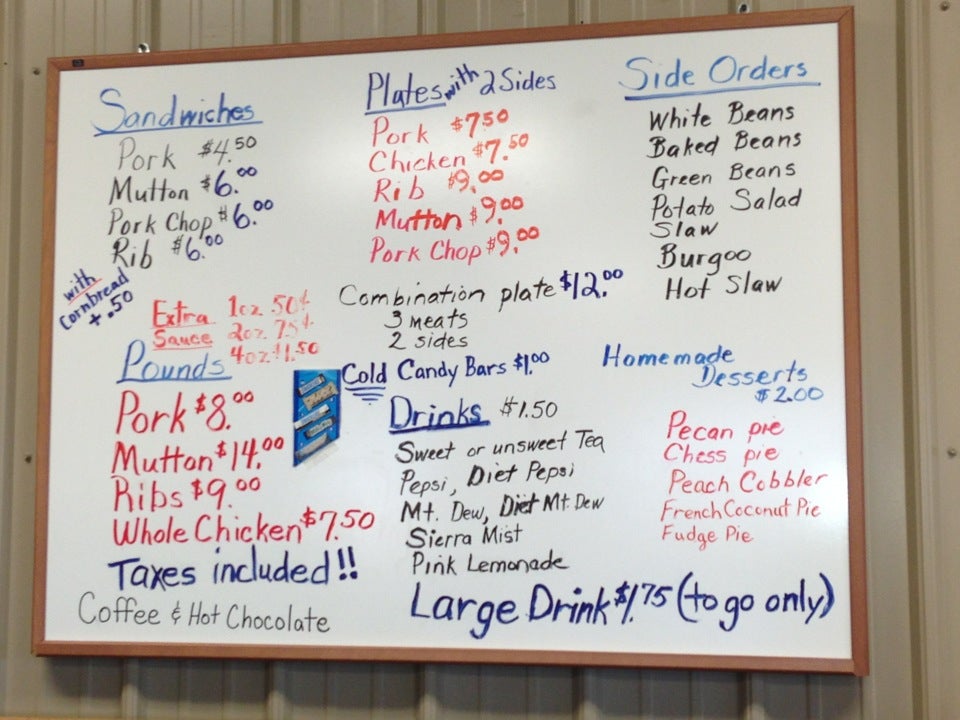 Sandwiches
Pork $4.50
Mutton $6.00
Pork Chop $6.00
Rib $6.00
with
Cornbread
+ .50
Extra 1oz 50¢
Sauce 2oz 75¢
4oz $1.50
Pounds
Pork $8.00
Mutton $14.00
Ribs $9.00
Whole Chicken $7.50
Taxes included!!
Coffee & Hot Chocolate
Plates with 2 Sides
Pork $7.50
Chicken $7.50
Rib $9.00
Mutton $9.00
Pork Chop $9.00
Combination plate $12.00
3 meats
2 sides
Cold Candy Bars $1.00
Drinks $1.50
Sweet or unsweet Tea
Pepsi, Diet Pepsi
Mt. Dew, Diet Mt. Dew
Sierra Mist
Pink Lemonade
Large Drink $1.75 (to go only)
Side Orders
White Beans
Baked Beans
Green Beans
Potato Salad
Slaw
Burgoo
Hot Slaw
Homemade
Desserts
$2.00
Pecan pie
Chess pie
Peach Cobbler
French Coconut Pie
Fudge Pie